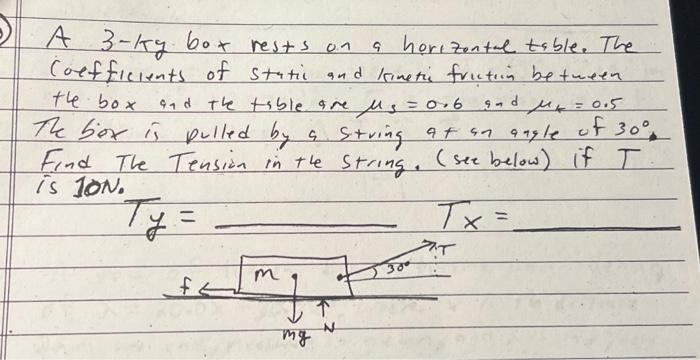 A 3-kg box rests on a horizontal table. The
Coefficients of static and kinetic friction between
the box and the table are μs = 0.6 and μk = 0.5
The box is pulled by a string at an angle of 30°.
Find The Tension in the string. (see below) if T
is 10N.
Ty = ________ Tx = ________
T
m 30°
f
mg N